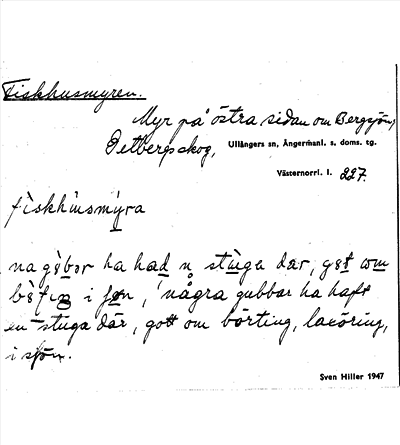 Fiskhusmyren.
Myr på östra sidan om Bergsjön,
Petbergsskog, Ullångers sn, Ångermanl. s. doms. tg.
Västernorrl. l. 227.
fiskhusmýra
na gùbər ha had n stuga dar, gɷt ɷm
i sjøn, 'några gubbar ha haft
en stuga där, gott om börting, laxöring,
i sjön.
Sven Hiller 1947